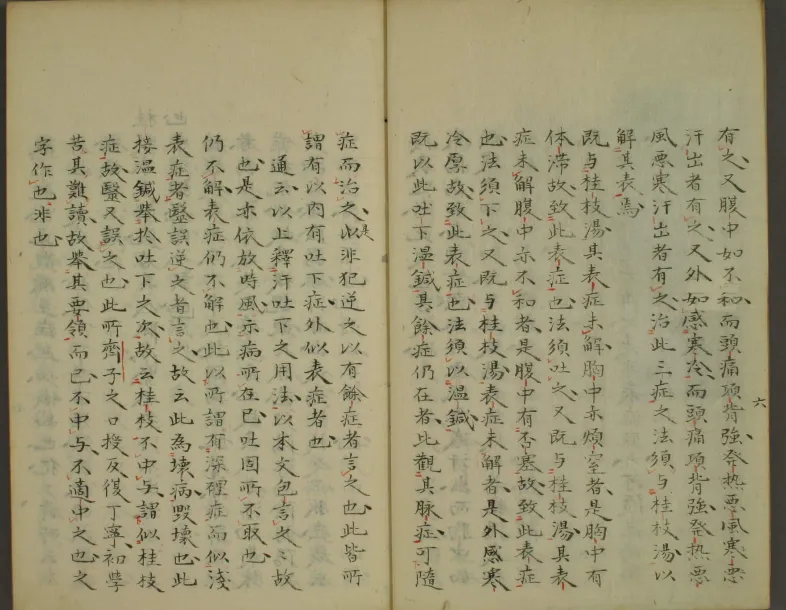 有之又腹中如不和而頭痛項背強発熱悪風寒悪
汗出者有之又外如感寒冷而頭痛項背強発熱悪
風悪寒汗出者有之治此三症之法須与桂枝湯以
解其表焉
既与桂枝湯其表症未解胸中亦煩窒者是胸中有
体滞故致此表症也法須吐之又既与桂枝湯其表
症未解腹中亦不和者是腹中有否塞故致此表症
也法須下之又既与桂枝湯表症未解者是外感寒
冷厚故致此表症也法須以温鍼
既以此吐下温鍼其餘症仍在者比觀其脉症可隨
六
症而治之此是非犯逆之以有餘症者言之也此皆所
謂有以内有吐下症外似表症者也
通云以上釋汗吐下之用法以本文包言之〻故
也是亦依放時風示病所在已吐固所不取也
仍不解表症仍不解也此以所謂有深裡症而似淺
表症者醫誤逆之者言之故云此為壊病毀壊也此
接温鍼舉於吐下之次故云桂枝不中与謂似桂枝
症故醫又誤之也此所齊子之口授反復丁寧初学
苦其難讀故舉其要領而已不中与不適中之也之
字作也非也